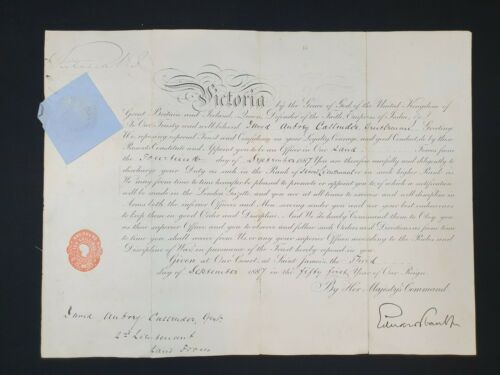 Victoria R
Victoria by the Grace of God of the United Kingdom of
Great Britain and Ireland, Queen, Defender of the Faith, Empress of India, &c.
To Our Trusty and well beloved David Aubrey Callender, Gentleman, Greeting
We, reposing especial Trust and Confidence in your Loyalty, Courage, and good Conduct, do by these
Presents Constitute and Appoint you to be an Officer in Our Land Forces from the
Fourteenth day of September 1887 You are therefore carefully and diligently to
discharge your Duty as such in the Rank of Second Lieutenant or in such higher Rank as
We may from time to time hereafter be pleased to promote or appoint you to, of which a notification
will be made in the London Gazette, and you are at all times to exercise and well discipline in
Arms both the inferior Officers and Men serving under you and use your best endeavours
to keep them in good Order and Discipline. And We do hereby Command them to Obey you
as their superior Officer, and you to observe and follow such Orders and Directions as from time
to time you shall receive from Us, or any your superior Officer, according to the Rules and
Discipline of War, in pursuance of the Trust hereby reposed in you.
Given at Our Court, at Saint James's, the Third
day of September 1887 in the Fifty first Year of Our Reign
By Her Majesty's Command.
David Aubrey Callender, Gent
2nd Lieutenant
Land Forces